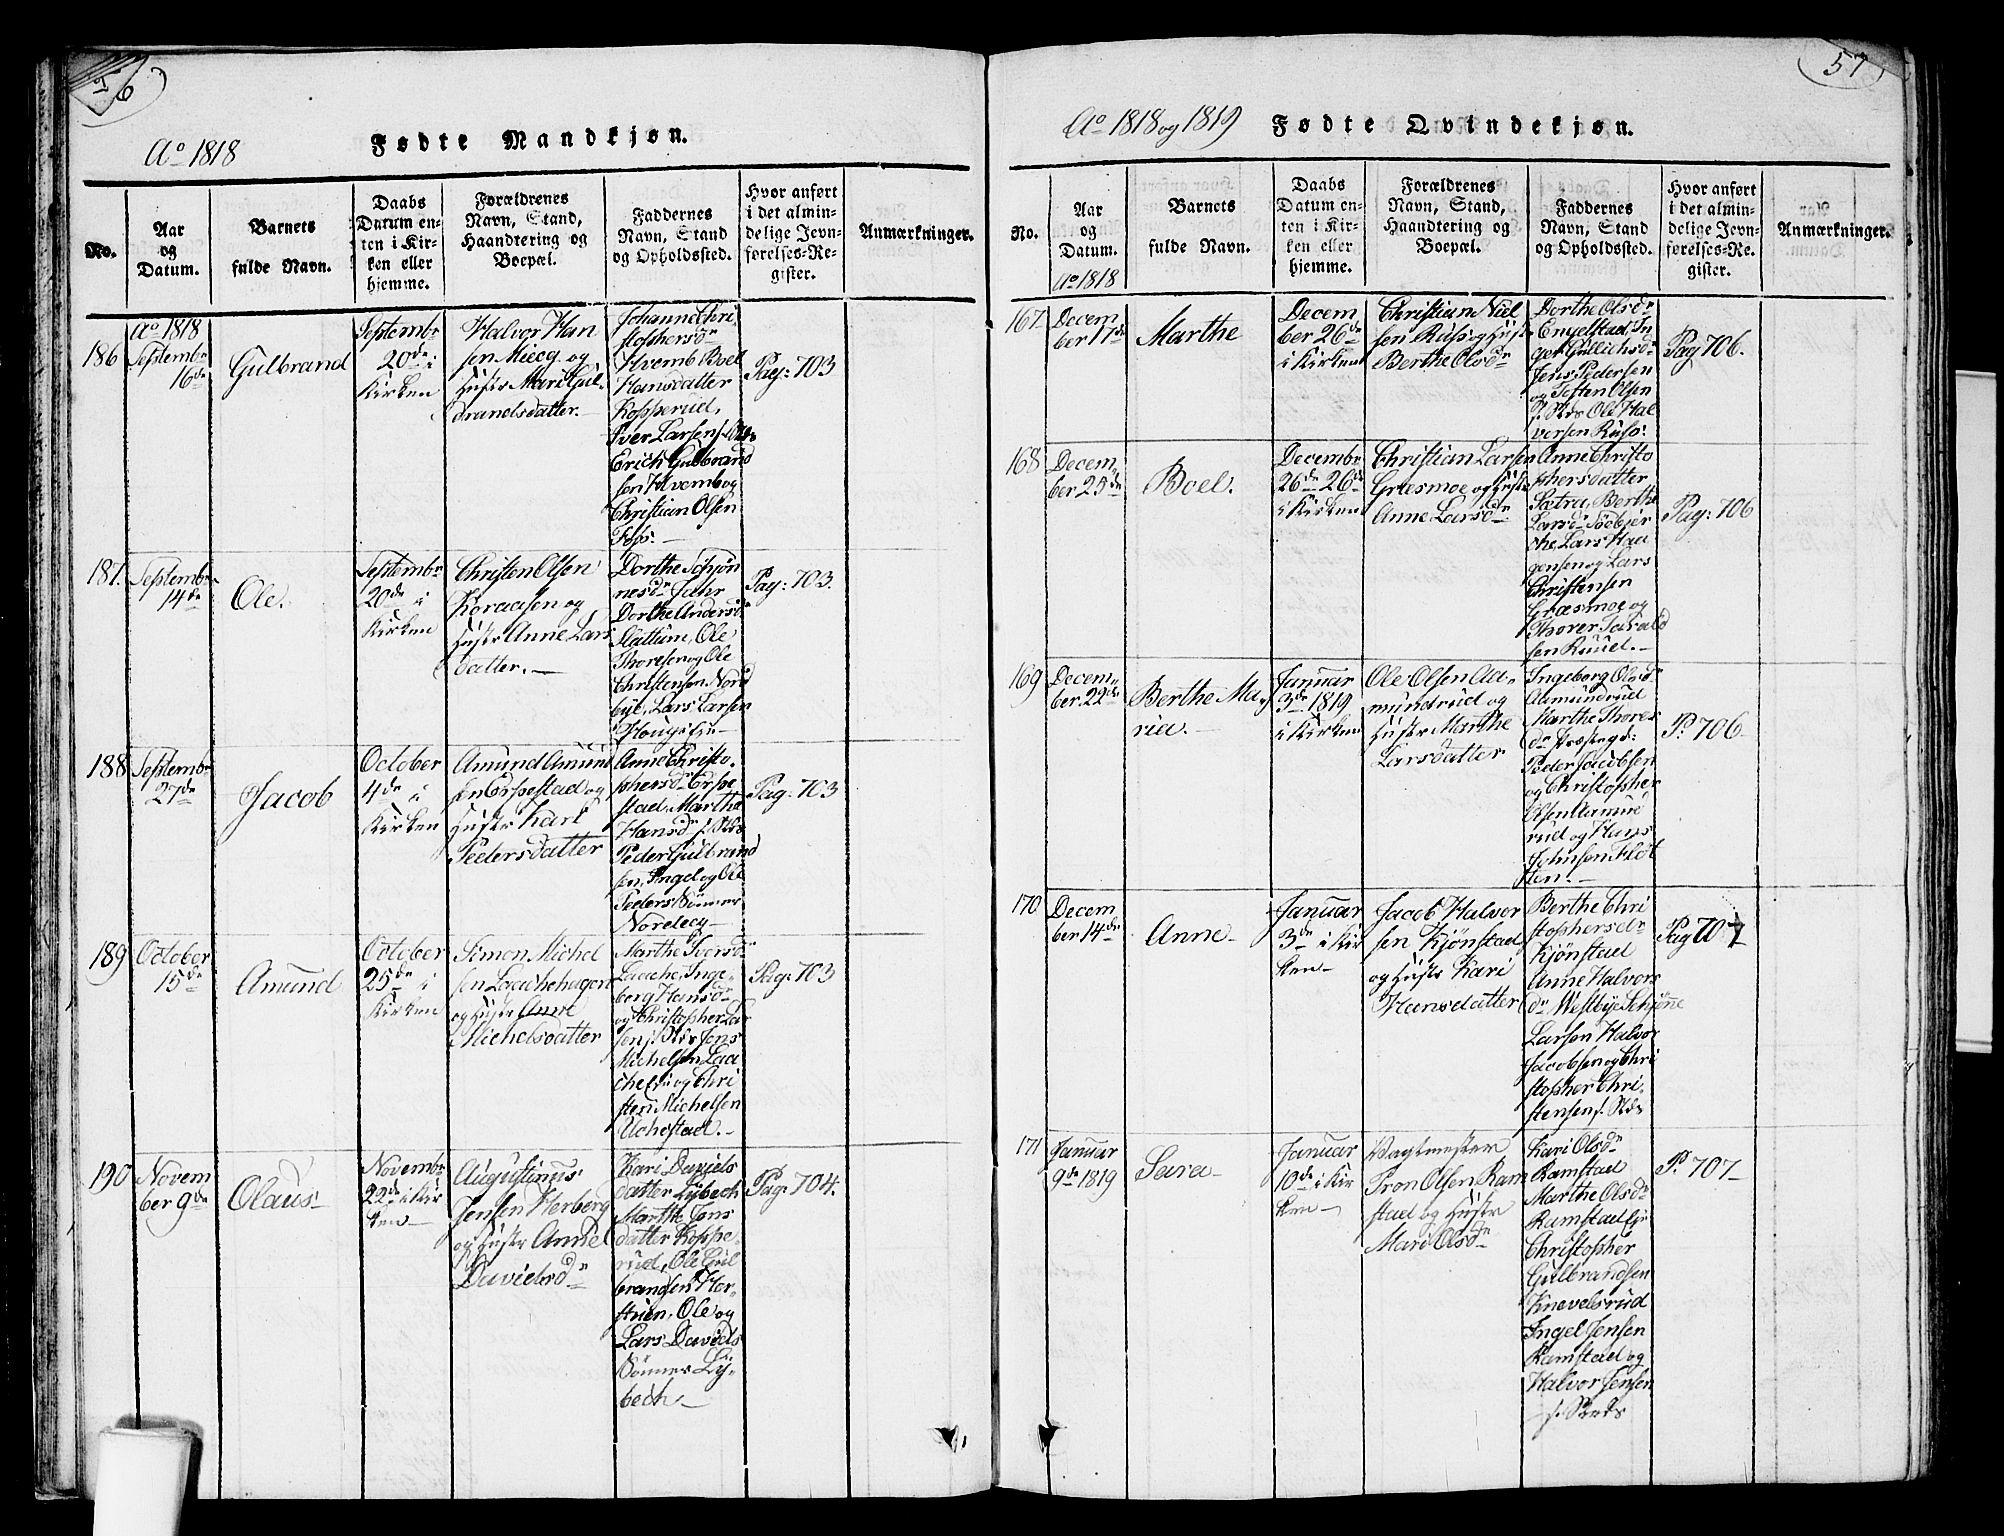 56
Aº 1818
Fødte Mandkjøn.
No.
Aar
og
Datum.
Barnets
fulde Navn.
Daabs
Datum en-
ten i Kir-
ken eller
hjemme.
Forældrenes
Navn, Stand,
Haandtering og
Boepæl.
Faddernes
Navn, Stand
og Opholdssted.
Hvor anført
i det almin-
delige Jevn-
førelses-Re-
gister.
Anmærkninger.
Aº 1818
186
Septembr
16de
Gulbrand
Septembr
20de i
Kirken
Halvor Han
sen Miecg og
Hustr Mari Gul
brandsdatter.
Johanne Chri,
stophersdr
Hvemb Boel
Hansdatter
Kopperud,
Iver Larsen
Erich Gulbrand
sen Hvemb og
Christian Olsen
Foss.
Pag: 703
187.
Septembr
14de
Ole.
Septembr
20de i
Kirken
Christen Olsen
Koraasen og
Hustr Anne Lars
datter.
Dorthe Schjøn
nesdr Fahr
Dorthe Andersdr
Slattum, Ole
Thoresen og Ole
Christensen Nord
bye, Lars Larsen
Hougeeje
Pag: 703.
188
Septembr
27de
Jacob
October
4de i
Kirken
Amund Amund
sen Erpestad og
Hustr Kari
Pedersdatter
Anne Christo-
phersdr Erpe
stad, Marthe
Hansdr s. Stds
Peder Gulbrand
sen, Ingel og Ole
Peders Sønner
Nordecg
Pag: 703
189
October
15de
Amund
October
25de i
Kirken
Simon Michel
sen Laachehagen
og Hustr Anne
Michelsdatter
Marthe Iversdr
Laache, Inge-
berg Hansdr
og Christopher Lar
sen s. Stds Jens
Michelsen Laa
che og Chri
sten Michelsen
Uchestad.
Pag: 703
190
Novem
ber 9de
Olaus
Novembr
22de i Kir
ken
Augustinus
Jensen Herberg
og Hustr Anne
Davidsdr
Kari Davids
datter Lybech
Marthe Jens
datter Koppe
rud, Ole Gul
brandsen Hor-
stuen, Ole og
Lars Davids
Sønner Ly-
bech
Pag: 704.
57
Aº 1818 og 1819
Fødte Qvindekjøn.
No.
Aar
og
Datum.
Aº 1818
Barnets
fulde Navn.
Daabs
Datum en-
ten i Kir-
ken eller
hjemme.
Forældrenes
Navn, Stand,
Haandtering og
Boepæl.
Faddernes
Navn, Stand
og Opholdssted.
Hvor anført
i det almin-
delige Jevn-
førelses-Re-
gister.
Anmærkninger.
167
Decem
ber 17de
Marthe
Decem
ber 26de
i Kirken
Christian Niel
sen Russ og Hustr
Berthe Olsdr
Dorthe Olsdr
Engelstad, In
ger Gullichsdr
Jens Pedersen
og Tosten Olsen
s. Stds Ole Hal
versen Russ.
Pag 706.
168
Decem
ber 25de
Boel.
Decembr
26de 26de
i Kirken
Christian Larsen
Græsmoe og Hustr
Anne Larsdr
Anne Christo
phersdatter
Sætra, Berthe
Larsdr Søebjer
che, Lars Haa
gensen og Lars
Christensen
Græsmoe og
Thorer Sarald
sen Ruud.
Pag: 706
169
Decem
ber 22de
Berthe Ma,
ria.
Januar
3de 1819
i Kirken
Ole Olsen Aa-
mundrud og
Hustr Marthe
Larsdatter
Ingeborg Olsdr
Aamundrud
Marthe Thores
dr
Peder Jacobsen
og Christopher
Olsen Aamund
rud og Hans
Johnsen Fløt
sten.
P: 706
170
Decem
ber 14de
Anne
Januar
3de i Kir
ken
Jacob Halvor
sen Kjønstad
og Hustr Kari
Hansdatter
Berthe Chri
stophersdr
Kjønstad
Anne Halvors
dr Westbye Schjønne
Larsen Halvor
Jacobsen og Chri
stopher Chri-
stensen s. Stds
Pag 707
171
Januar
9de 1819
Sara
Januar
10de i Kir
ken
Vagtmester
Tron Olsen Ram
stad og Hustr
Mari Olsdr
Kari Olsdr
Ramstad
Marthe Olsdr
Ramstad Eje
Christopher
Gulbrandsen
Knevelsrud
Ingel Jensen
Ramstad og
Halvor Jensen
s. Steds
P: 707